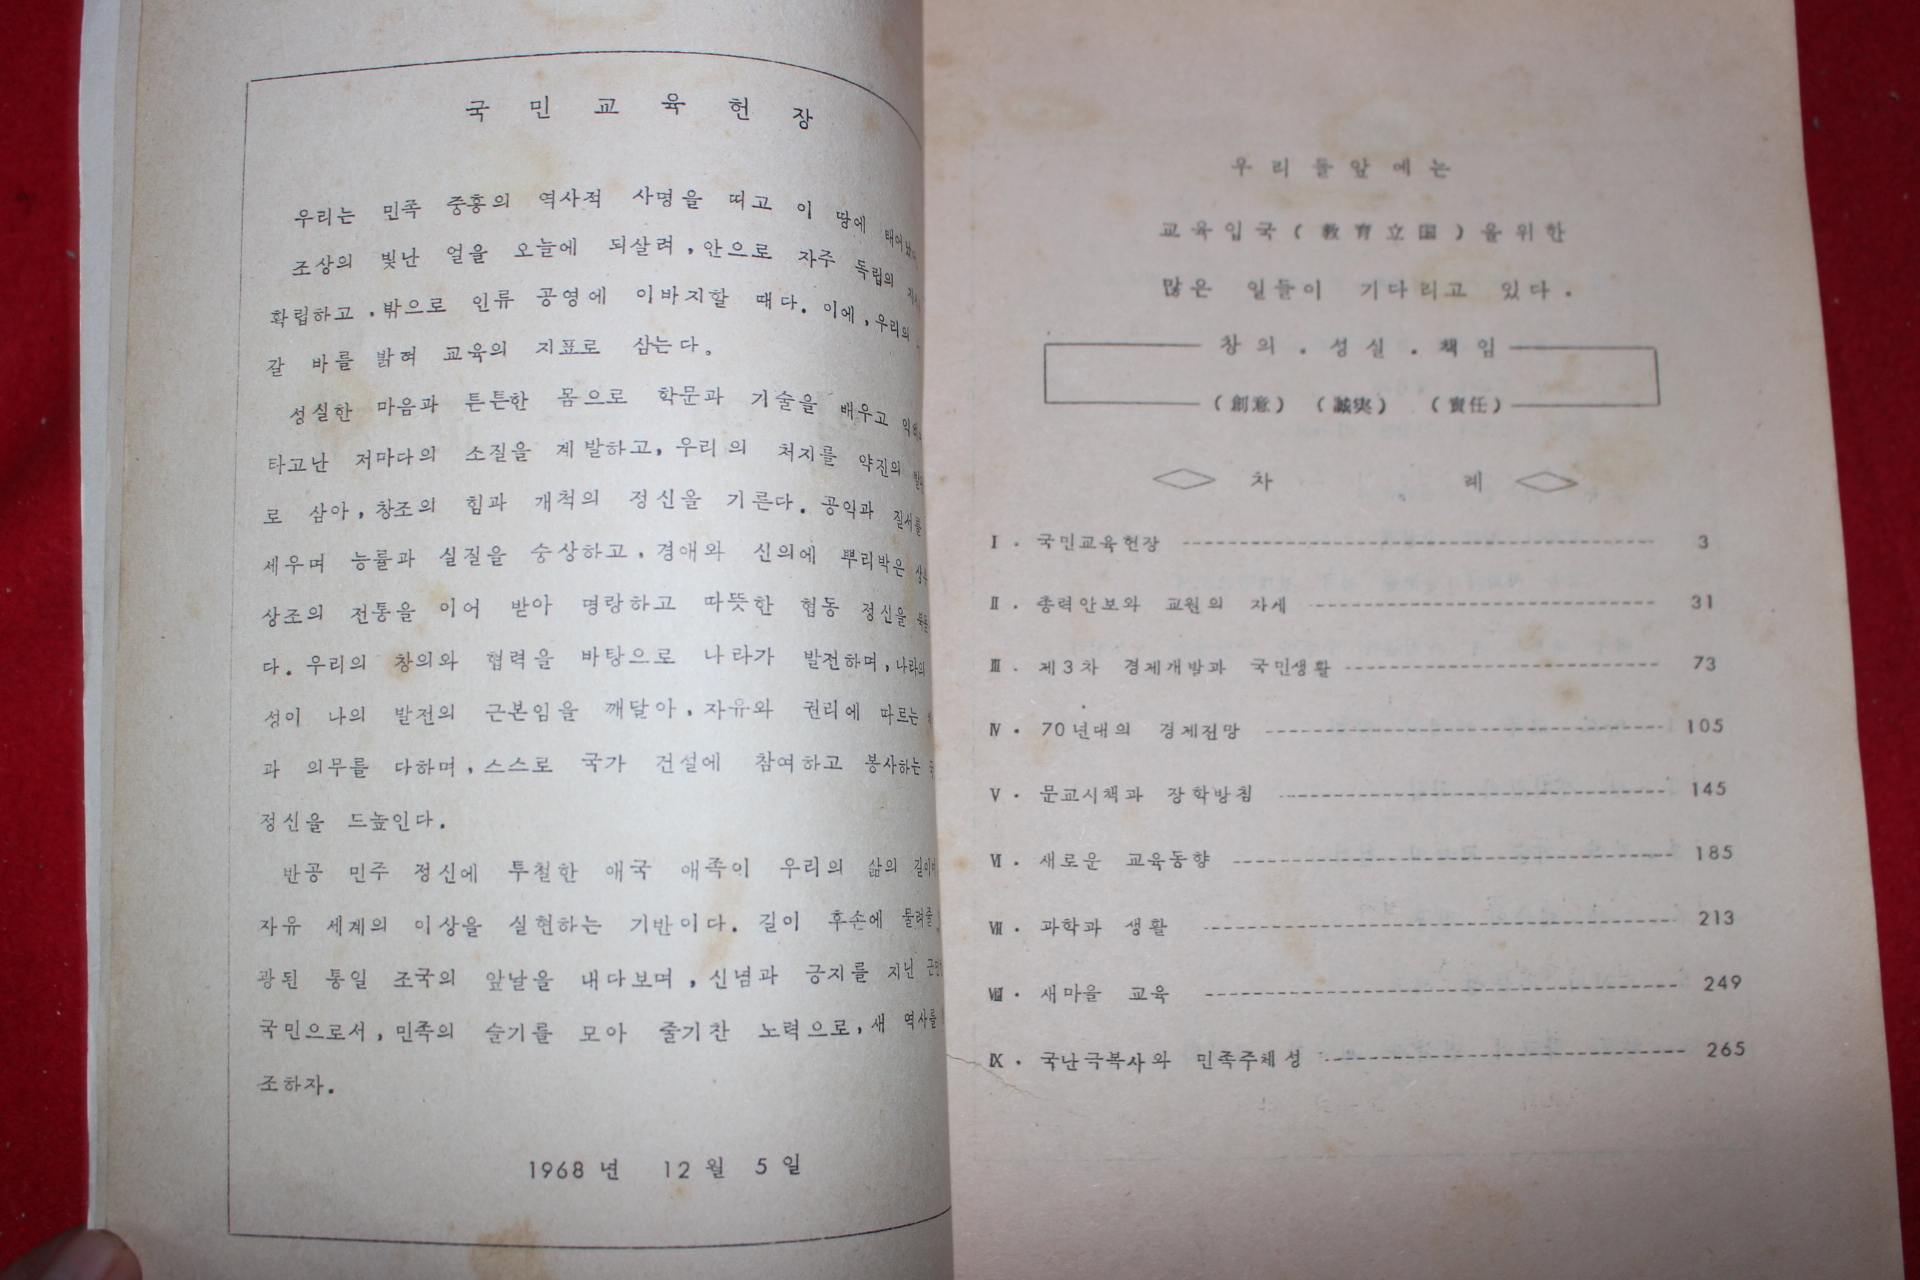 국민교육헌장
우리는 민족 중흥의 역사적 사명을 띠고 이 땅에 태어났
조상의 빛난 얼을 오늘에 되살려, 안으로 자주 독립의
확립하고, 밖으로 인류 공영에 이바지할 때다. 이에, 우리의
갈 바를 밝혀 교육의 지표로 삼는다.
성실한 마음과 튼튼한 몸으로 학문과 기술을 배우고
타고난 저마다의 소질을 계발하고, 우리의 처지를 약진의
로 삼아, 창조의 힘과 개척의 정신을 기른다. 공익과 질서를
세우며 능률과 실질을 숭상하고, 경애와 신의에 뿌리박은
상조의 전통을 이어 받아 명랑하고 따뜻한 협동 정신을
다. 우리의 창의와 협력을 바탕으로 나라가 발전하며, 나라의
성이 나의 발전의 근본임을 깨달아, 자유와 권리에 따르는
과 의무를 다하며, 스스로 국가 건설에 참여하고 봉사하는
정신을 드높인다.
반공 민주 정신에 투철한 애국 애족이 우리의 삶의 길이
자유 세계의 이상을 실현하는 기반이다. 길이 후손에 물려줄
광된 통일 조국의 앞날을 내다보며, 신념과 긍지를 지닌
국민으로서, 민족의 슬기를 모아 줄기찬 노력으로, 새 역사를
조하자.
1968년 12월 5일
우리들앞에는
교육입국(教育立国)을위한
많은 일들이 기다리고 있다.
창의.성실.책임
(創意) (誠実) (責任)
차 례
Ⅰ. 국민교육헌장 3
Ⅱ. 총력안보와 교원의 자세 31
Ⅲ. 제3차 경제개발과 국민생활 73
Ⅳ. 70년대의 경제전망 105
Ⅴ. 문교시책과 장학방침 145
Ⅵ. 새로운 교육동향 185
Ⅶ. 과학과 생활 213
Ⅷ. 새마을 교육 249
Ⅸ. 국난극복사와 민족주체성 265